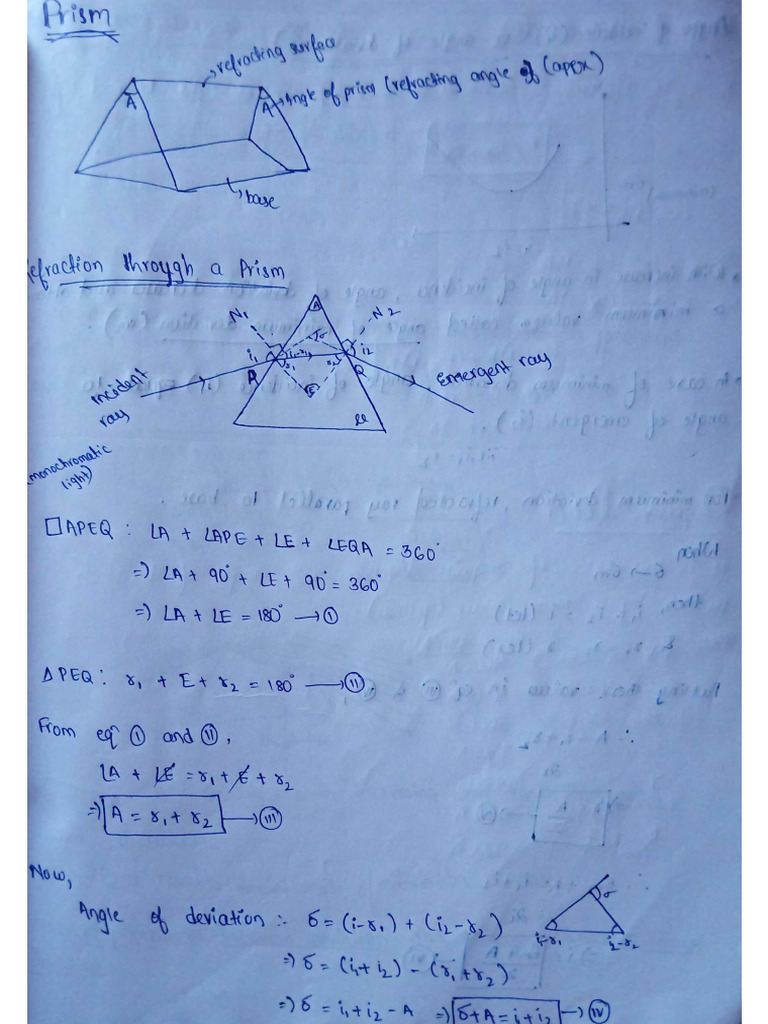 Prism
refracting surface
A
A
Angle of prism (refracting angle of (apex)
base
refraction through a Prism
A
N1
N2
δ
i1
i1-r1
i2
r1
r2
P
Q
E
μ
Incident
ray
Emergent ray
(monochromatic
light)
□APEQ : ∠A + ∠APE + ∠E + ∠EQA = 360°
=) ∠A + 90° + ∠E + 90° = 360°
=) ∠A + ∠E = 180° → ①
Δ PEQ : r1 + E + r2 = 180° → ②
From eqn ① and ②,
∠A + ∠E = r1 + E + r2
=) A = r1 + r2 → ③
Now,
Angle of deviation :- δ = (i-r1) + (i2-r2)
δ
i1-r1
i2-r2
=) δ = (i1+i2) - (r1+r2)
=) δ = i1+i2 - A =) δ+A = i+i2 → ④